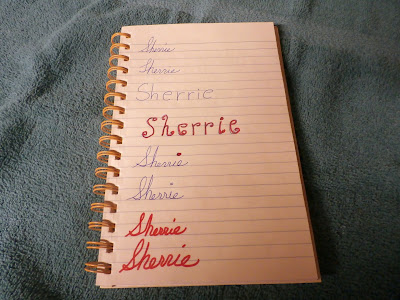 Sherrie
Sherrie
Sherrie
Sherrie
Sherrie
Sherrie
Sherrie
Sherrie